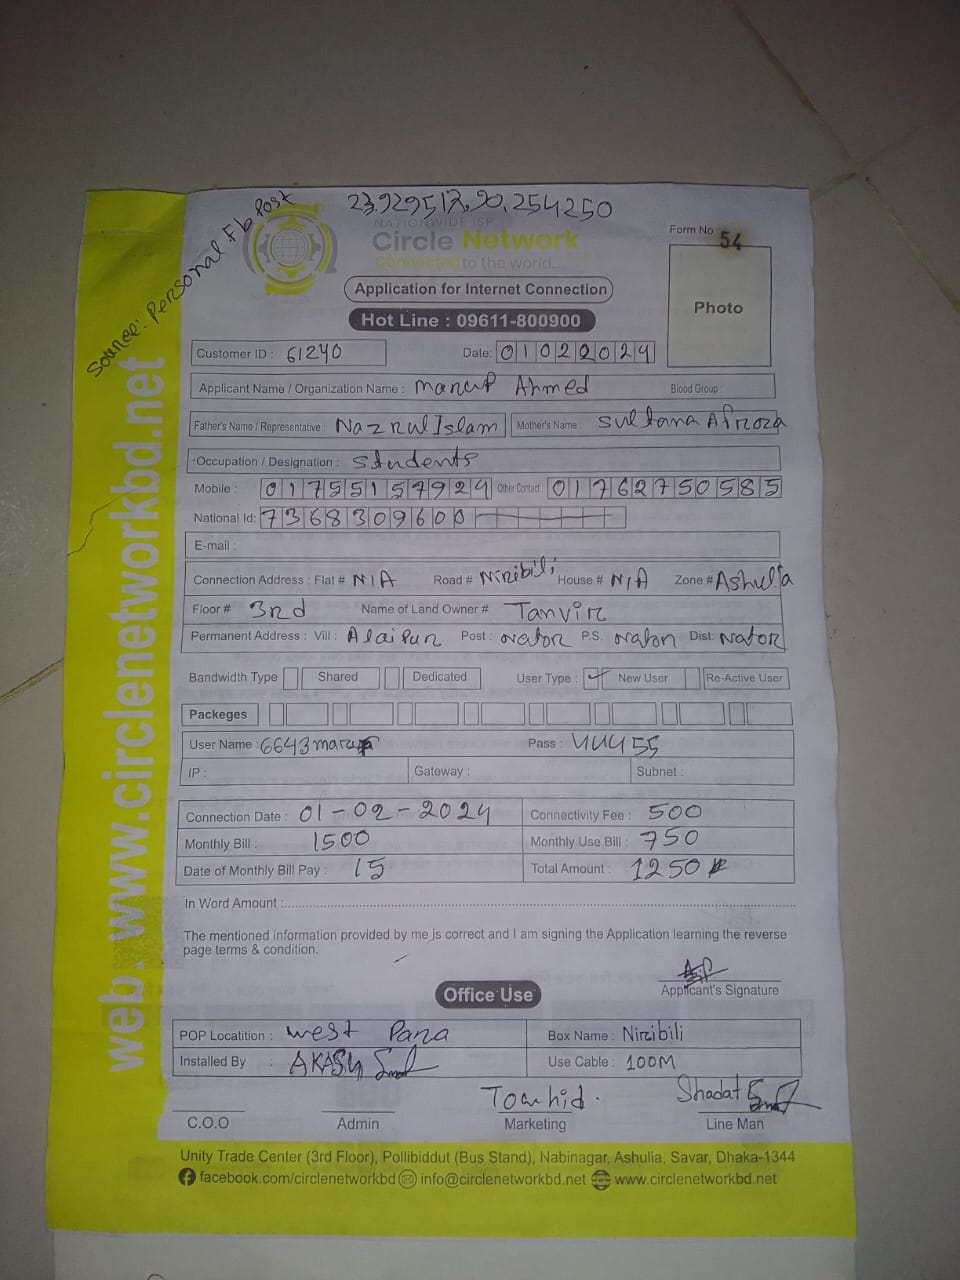 Source: Personal Fb Post
23.929517,90.254250
NATIONWIDE ISP
Circle Network
Connected to the world...
Form No : 54
Photo
Application for Internet Connection
Hot Line : 09611-800900
Customer ID : 61240 Date: 01022024
Applicant Name / Organization Name : Maruf Ahmed Blood Group :
Father's Name / Representative : Nazrul Islam Mother's Name : Sultana Afroza
Occupation / Designation : Students
Mobile : 01755157924 Other Contact : 01762750585
National Id: 7368309600
E-mail :
Connection Address : Flat # N/A Road # Niribili House # N/A Zone # Ashulia
Floor # 3rd Name of Land Owner # Tanvir
Permanent Address : Vill : Alaipur Post : Nator P.S. Nator Dist: Nator
Bandwidth Type Shared Dedicated User Type : ✓ New User Re-Active User
Packeges
User Name : 6643maruf Pass : 444455
IP : Gateway : Subnet :
Connection Date : 01-02-2024 Connectivity Fee : 500
Monthly Bill : 1500 Monthly Use Bill : 750
Date of Monthly Bill Pay : 15 Total Amount : 1250
In Word Amount :
The mentioned information provided by me is correct and I am signing the Application learning the reverse
page terms & condition.
Applicant's Signature
Office Use
POP Locatition : west Para Box Name : Niribili
Installed By : AKASH Use Cable : 100M
Towhid. Shadat
C.O.O Admin Marketing Line Man
Unity Trade Center (3rd Floor), Pollibiddut (Bus Stand), Nabinagar, Ashulia, Savar, Dhaka-1344
facebook.com/circlenetworkbd info@circlenetworkbd.net www.circlenetworkbd.net
web. www.circlenetworkbd.net